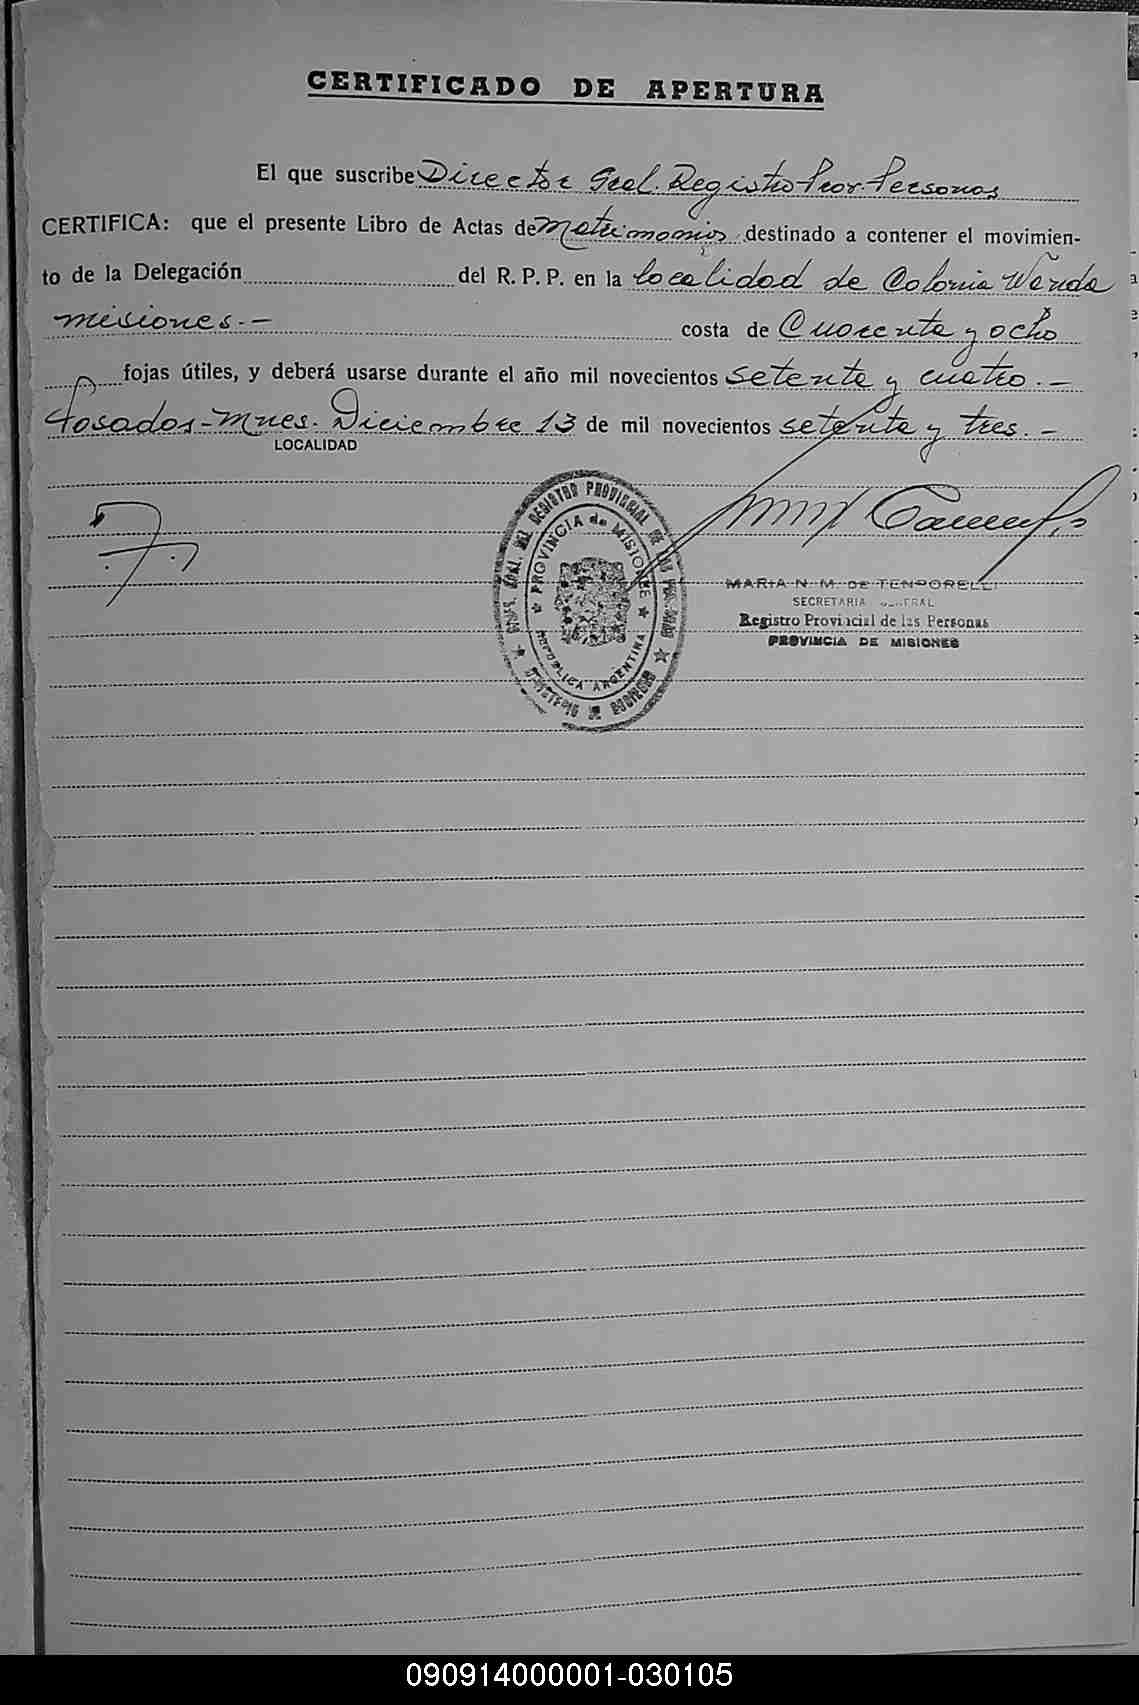 CERTIFICADO DE APERTURA
El que suscribe Director Gral. Registro Prov. Personas
CERTIFICA: que el presente Libro de Actas de Matrimonios destinado a contener el movimien-
to de la Delegación del R. P. P. en la localidad de Colonia Wanda
misiones.- costa de Cuarenta y ocho
fojas útiles, y deberá usarse durante el año mil novecientos setenta y cuatro.-
Posadas-Mnes. Diciembre 13 de mil novecientos setenta y tres.-
LOCALIDAD
REGISTRO PROVINCIAL DE LAS PERSONAS
PROVINCIA de MISIONES
REPUBLICA ARGENTINA
MINISTERIO DE GOBIERNO
MARIA N. M. DE TEMPORELLI
SECRETARIA GENERAL
Registro Provincial de las Personas
PROVINCIA DE MISIONES
090914000001-030105